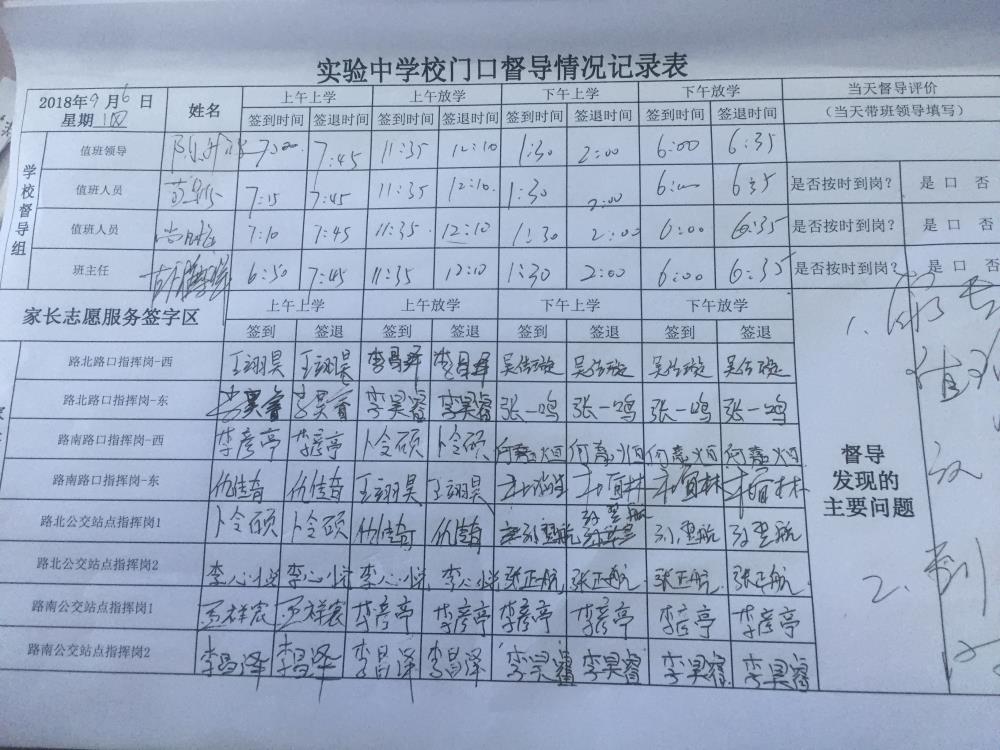 实验中学校门口督导情况记录表
2018年9月6日 星期四 姓名 上午上学 上午放学 下午上学 下午放学 当天督导评价
签到时间 签退时间 签到时间 签退时间 签到时间 签退时间 签到时间 签退时间 (当天带班领导填写)
学校督导组
值班领导 7:00 7:45 11:35 12:10 1:30 2:00 6:00 6:35
值班人员 7:15 7:45 11:35 12:10 1:30 2:00 6:00 6:35 是否按时到岗? 是 口 否
值班人员 7:10 7:45 11:35 12:10 1:30 2:00 6:00 6:35 是否按时到岗? 是 口 否
班主任 6:50 7:45 11:35 12:10 1:30 2:00 6:00 6:35 是否按时到岗? 是 口 否
家长志愿服务签字区 上午上学 上午放学 下午上学 下午放学
签到 签退 签到 签退 签到 签退 签到 签退
路北路口指挥岗-西 王翊昊 王翊昊 李昌泽 李昌泽 吴佑璇 吴佑璇 吴佑璇 吴佑璇
路北路口指挥岗-东 李昊睿 李昊睿 李昊睿 李昊睿 张一鸣 张一鸣 张一鸣 张一鸣
路南路口指挥岗-西 李彦亭 李彦亭 卜令硕 卜令硕 何嘉烜 何嘉烜 何嘉烜 何嘉烜
路南路口指挥岗-东 仇传奇 仇传奇 王翊昊 王翊昊
路北公交站点指挥岗1 卜令硕 卜令硕 仇传奇 仇传奇 孙翌航 孙翌航 孙翌航 孙翌航
路北公交站点指挥岗2 李心悦 李心悦 李心悦 李心悦 张正航 张正航 张正航 张正航
路南公交站点指挥岗1 王祥宸 王祥宸 李彦亭 李彦亭 李彦亭 李彦亭 李彦亭 李彦亭
路南公交站点指挥岗2 李昌泽 李昌泽 李昌泽 李昌泽 李昊睿 李昊睿 李昊睿 李昊睿
督导
发现的
主要问题
1、
2、